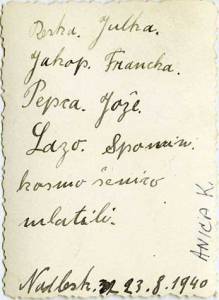 Perka. Julka.
Jakop. Francka.
Pepca. Jože.
Lazo. Spomin.
kosmo šenico
mlatili.
Nadlesk. 23.8.1940
ANICA K.